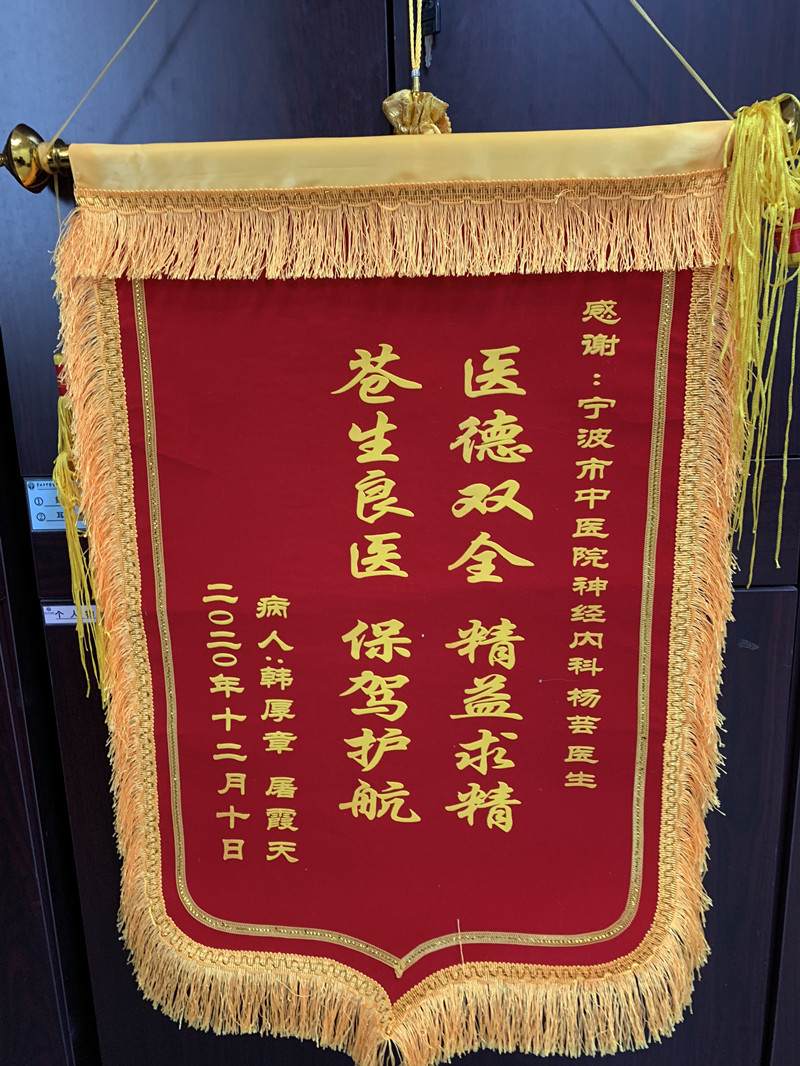 感谢：宁波市中医院神经内科杨芸医生
医德双全 精益求精
苍生良医 保驾护航
病人：韩厚章 屠霞天
二〇二〇年十二月十日
①
②
个人